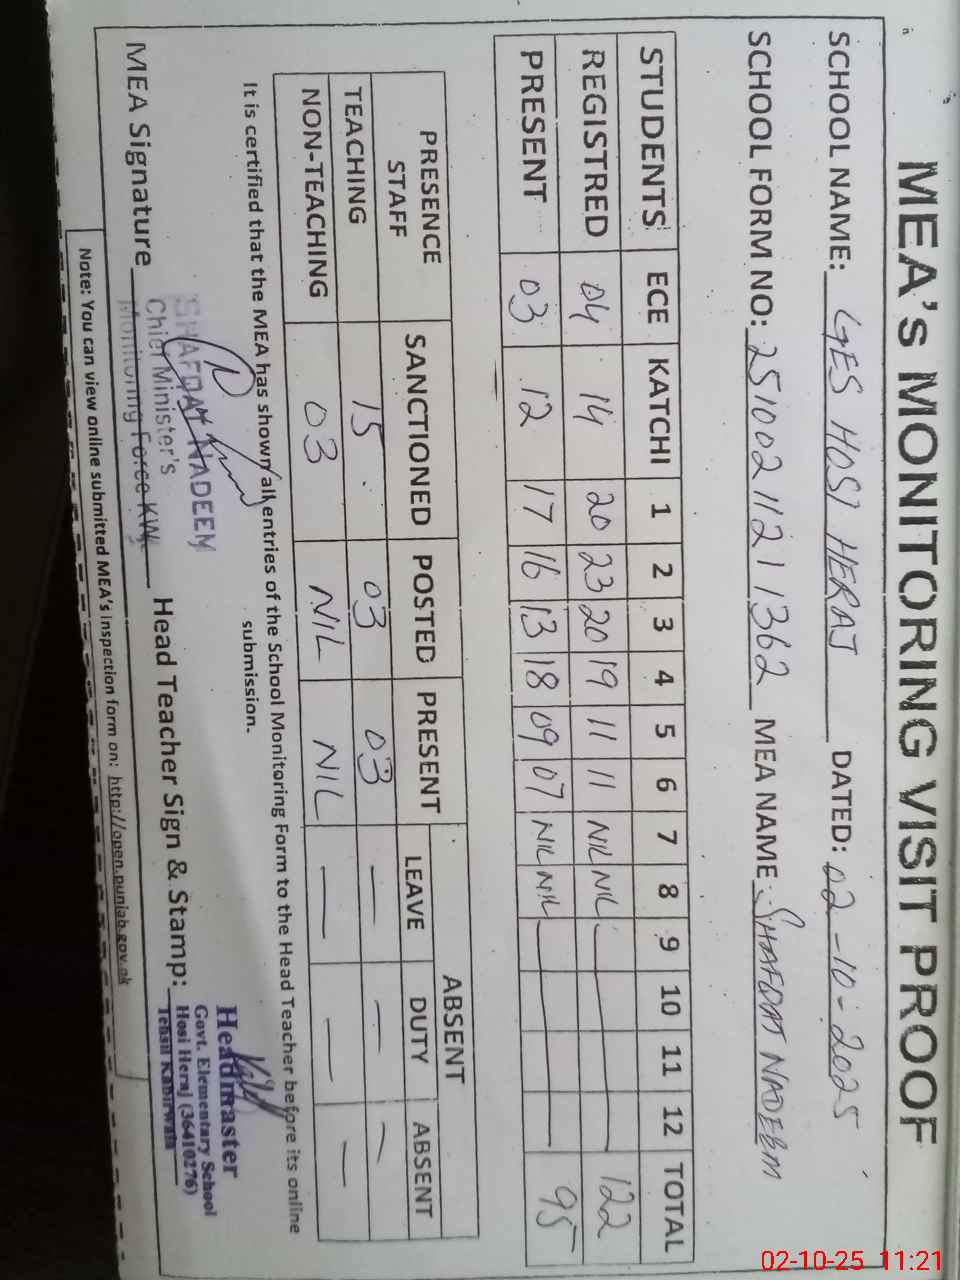 MEA's MONITORING VISIT PROOF
SCHOOL NAME: GES HOSI HERAJ DATED: 02-10-2025
SCHOOL FORM NO: 25100211211362 MEA NAME: SHAFQAT NADEEM
STUDENTS ECE KATCHI 1 2 3 4 5 6 7 8 9 10 11 12 TOTAL
REGISTRED 04 14 20 23 20 19 11 11 NIL NIL 122
PRESENT 03 12 17 16 13 18 09 07 NIL NIL 95
PRESENCE STAFF SANCTIONED POSTED PRESENT ABSENT
LEAVE DUTY ABSENT
TEACHING 15 03 03 — — —
NON-TEACHING 03 NIL NIL — — —
It is certified that the MEA has shown all entries of the School Monitoring Form to the Head Teacher before its online
submission.
SHAFQAT NADEEM
Chief Minister's
Monitoring Force KWL
MEA Signature Head Teacher Sign & Stamp:
Headmaster
Govt. Elementary School
Hosi Heraj (36410276)
Tehsil Kabirwala
Note: You can view online submitted MEA's inspection form on: http://open.punjab.gov.pk
02-10-25 11:21